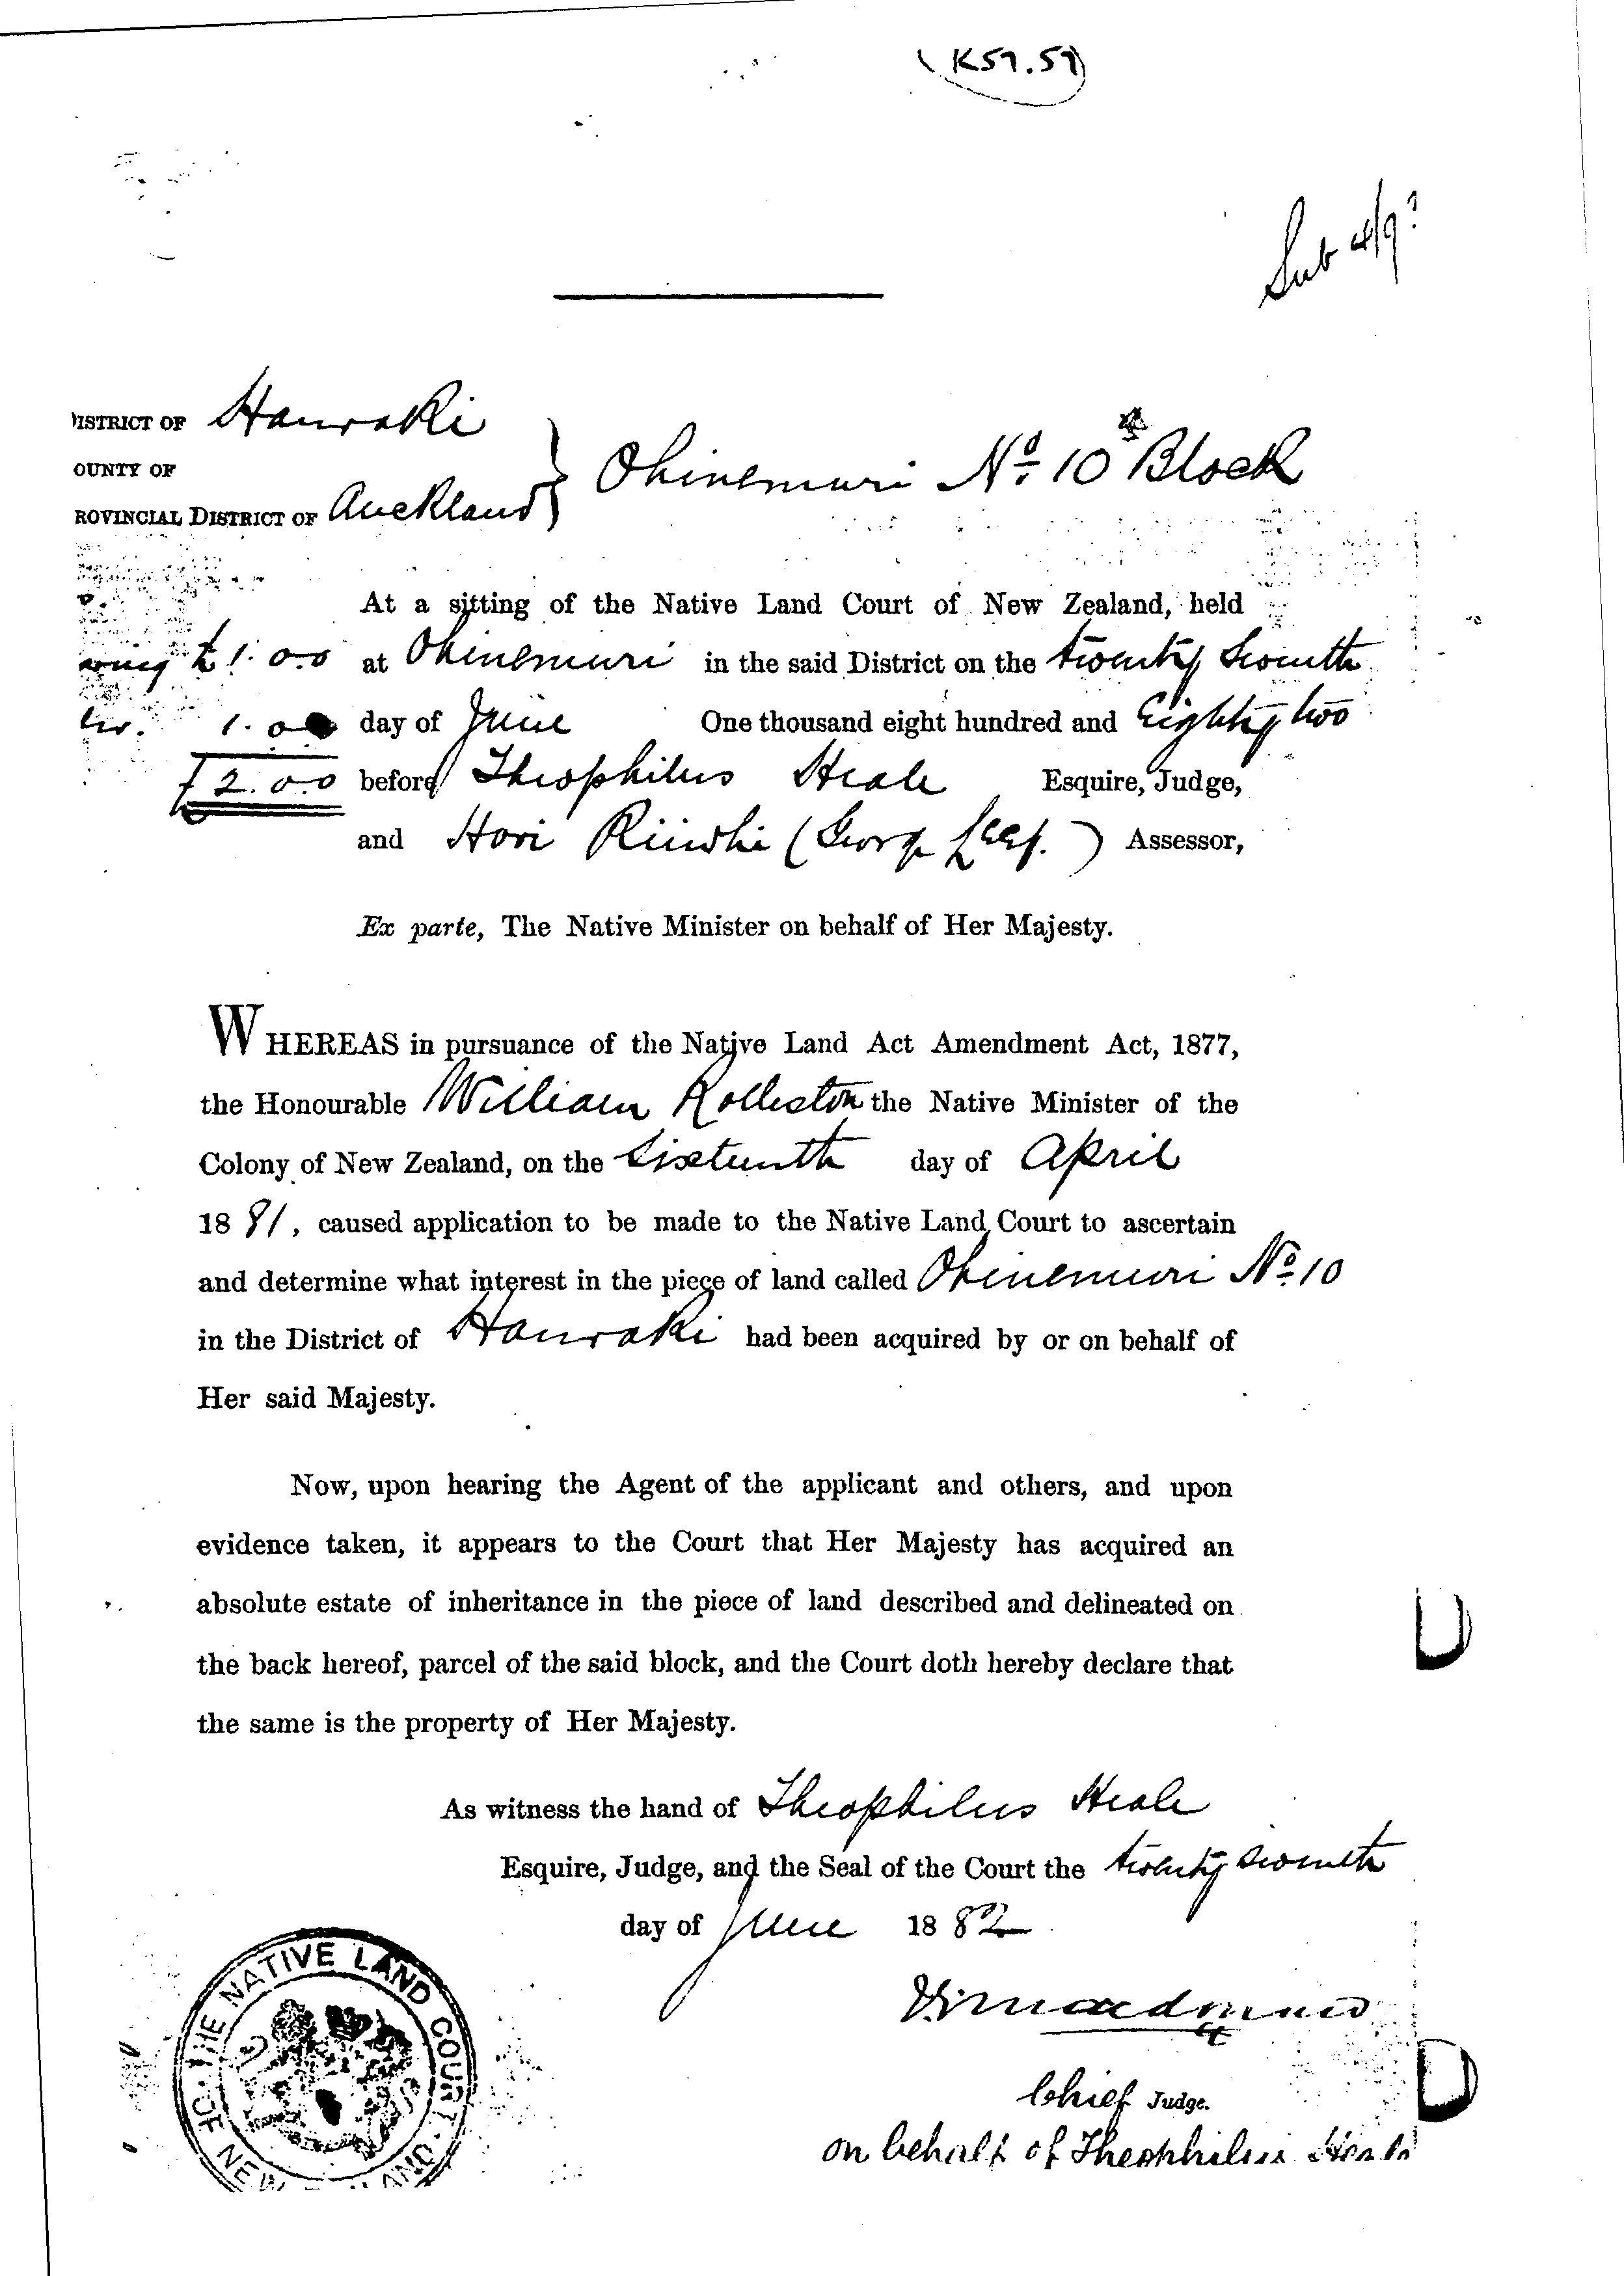 (K59.59)
Sub 4/9?
ISTRICT OF Hauraki
OUNTY OF
ROVINCIAL DISTRICT OF Auckland } Ohinemuri No. 10 Block
At a sitting of the Native Land Court of New Zealand, held
£1.0.0 at Ohinemuri in the said District on the twenty seventh
1.0 day of June One thousand eight hundred and Eighty two
£2.0.0 before Theophilus Heale Esquire, Judge,
and Hori Riiwhi (George ) Assessor,
Ex parte, The Native Minister on behalf of Her Majesty.
WHEREAS in pursuance of the Native Land Act Amendment Act, 1877,
the Honourable William Rolleston the Native Minister of the
Colony of New Zealand, on the Sixteenth day of April
1881, caused application to be made to the Native Land Court to ascertain
and determine what interest in the piece of land called Ohinemuri No. 10
in the District of Hauraki had been acquired by or on behalf of
Her said Majesty.
Now, upon hearing the Agent of the applicant and others, and upon
evidence taken, it appears to the Court that Her Majesty has acquired an
absolute estate of inheritance in the piece of land described and delineated on
the back hereof, parcel of the said block, and the Court doth hereby declare that
the same is the property of Her Majesty.
As witness the hand of Theophilus Heale
Esquire, Judge, and the Seal of the Court the twenty seventh
day of June 1882
Chief Judge.
on behalf of Theophilus Heale
THE NATIVE LAND COURT OF NEW ZEALAND